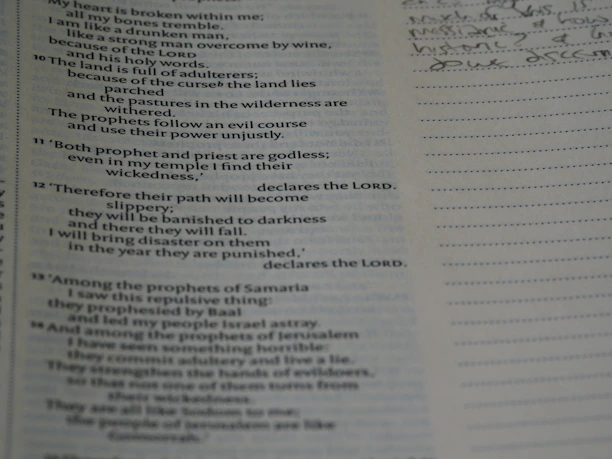 My heart is broken within me;
all my bones tremble.
I am like a drunken man,
like a strong man overcome by wine,
because of the LORD
and his holy words.
10 The land is full of adulterers;
because of the curse h the land lies
parched
and the pastures in the wilderness are
withered.
The prophets follow an evil course
and use their power unjustly.
11 ‘Both prophet and priest are godless;
even in my temple I find their
wickedness,’
declares the LORD.
12 ‘Therefore their path will become
slippery;
they will be banished to darkness
and there they will fall.
I will bring disaster on them
in the year they are punished,’
declares the LORD.
13 ‘Among the prophets of Samaria
I saw this repulsive thing:
they prophesied by Baal
and led my people Israel astray.
14 And among the prophets of Jerusalem
I have seen something horrible:
they commit adultery and live a lie.
They strengthen the hands of evildoers,
so that not one of them turns from
their wickedness.
They are all like Sodom to me;
the people of Jerusalem are like
Gomorrah.’